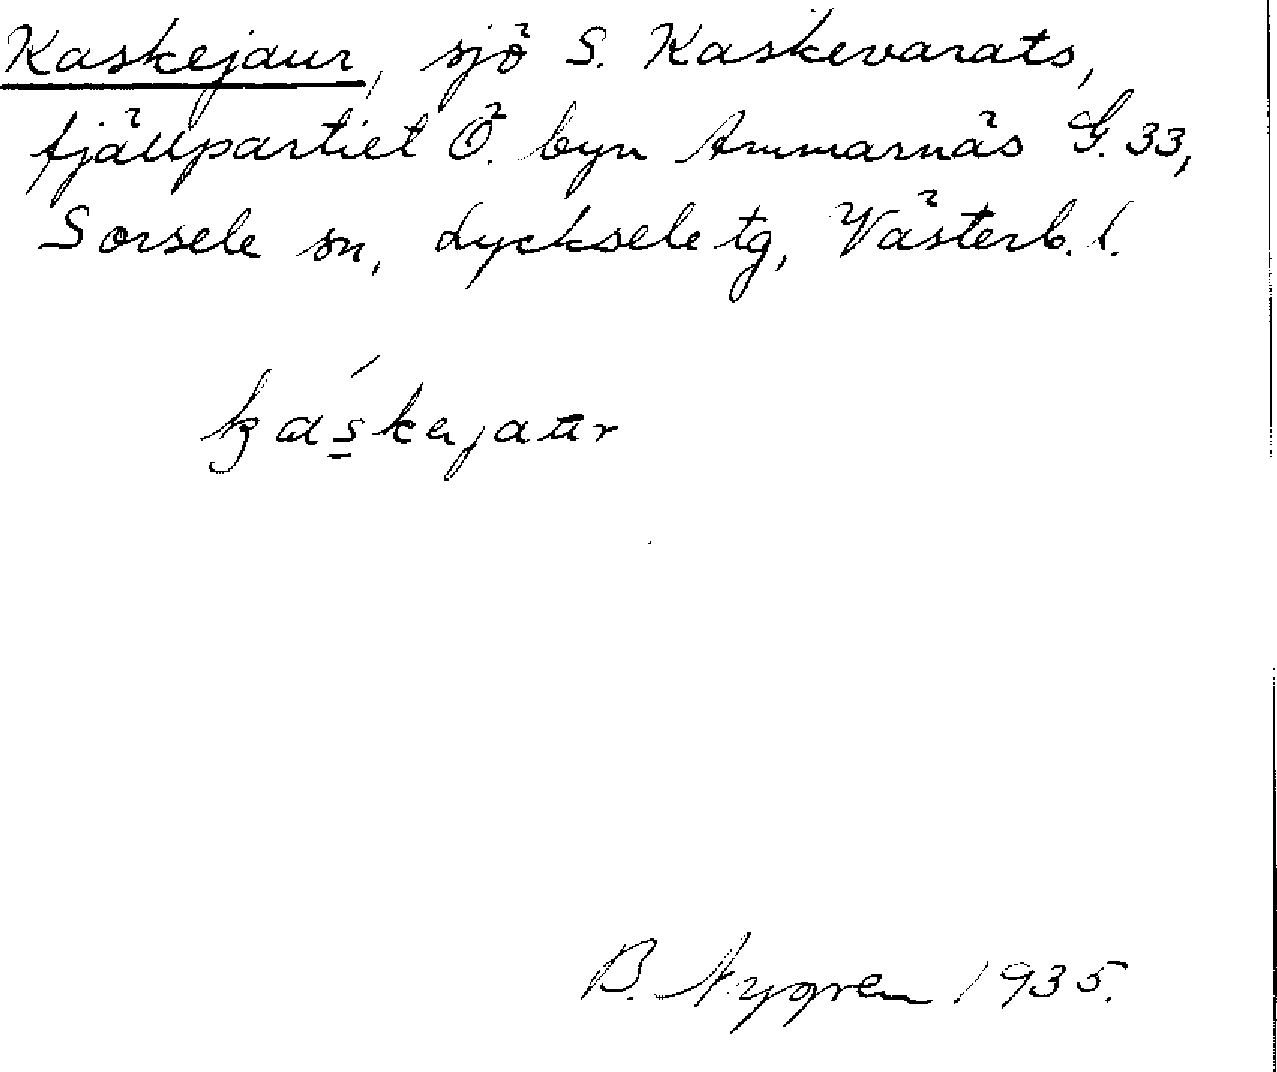 Kaskejaur, sjö S. Kaskevarats,
fjällpartiet Ö. byn Ammarnäs G. 33,
Sorsele sn, Lycksele tg, Västerb. l.
káskejaur
B. Nygren 1935.